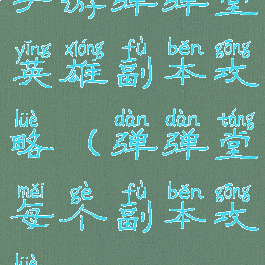 手游弹弹堂
yīng xióng fù běn gōng
英雄副本攻
lüè dàn dàn táng
略(弹弹堂
měi gè fù běn gōng
每个副本攻
lüè